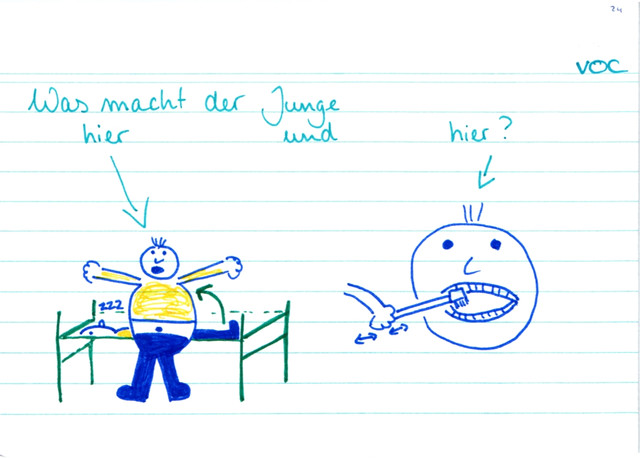 24
VOC
Was macht der Junge
hier und hier?
zzz